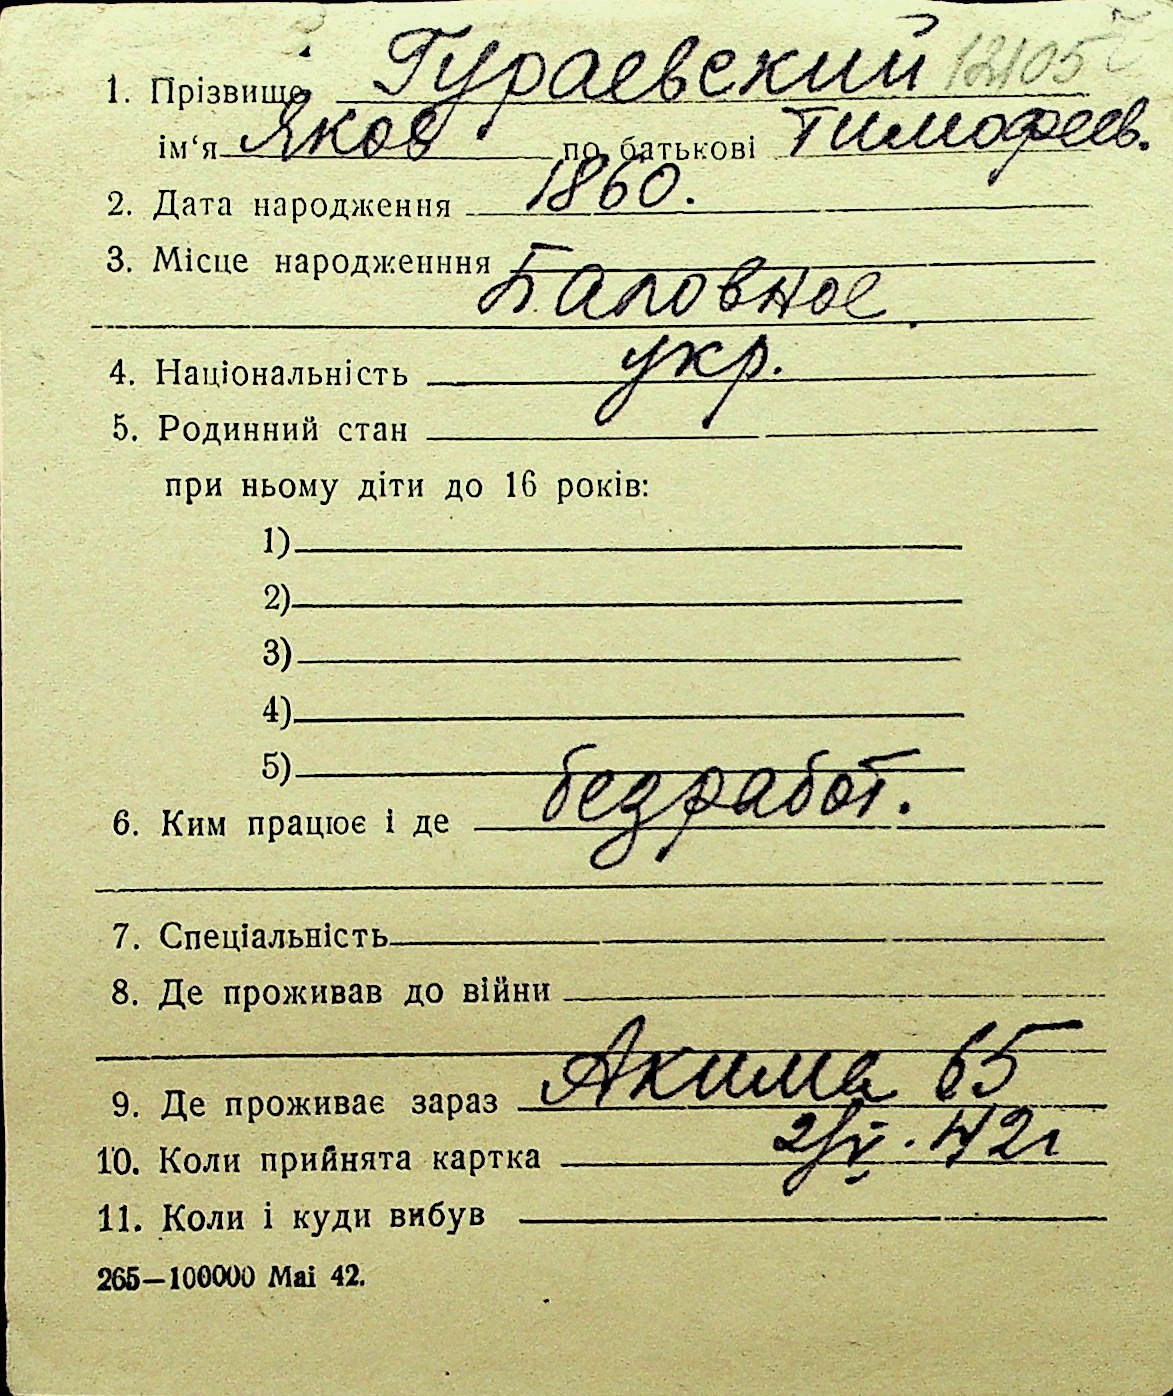 1. Прізвище Гураевский 12105
ім‘я Яков по батькові Тимофеев.
2. Дата народження 1860.
3. Місце народженння
Баловное
4. Національність укр.
5. Родинний стан
при ньому діти до 16 років:
1)
2)
3)
4)
5)
6. Ким працює і де безработ.
7. Спеціальність
8. Де проживав до війни
9. Де проживає зараз Акима 65
10. Коли прийнята картка 2/V. 42г
11. Коли і куди вибув
265—100000 Mai 42.